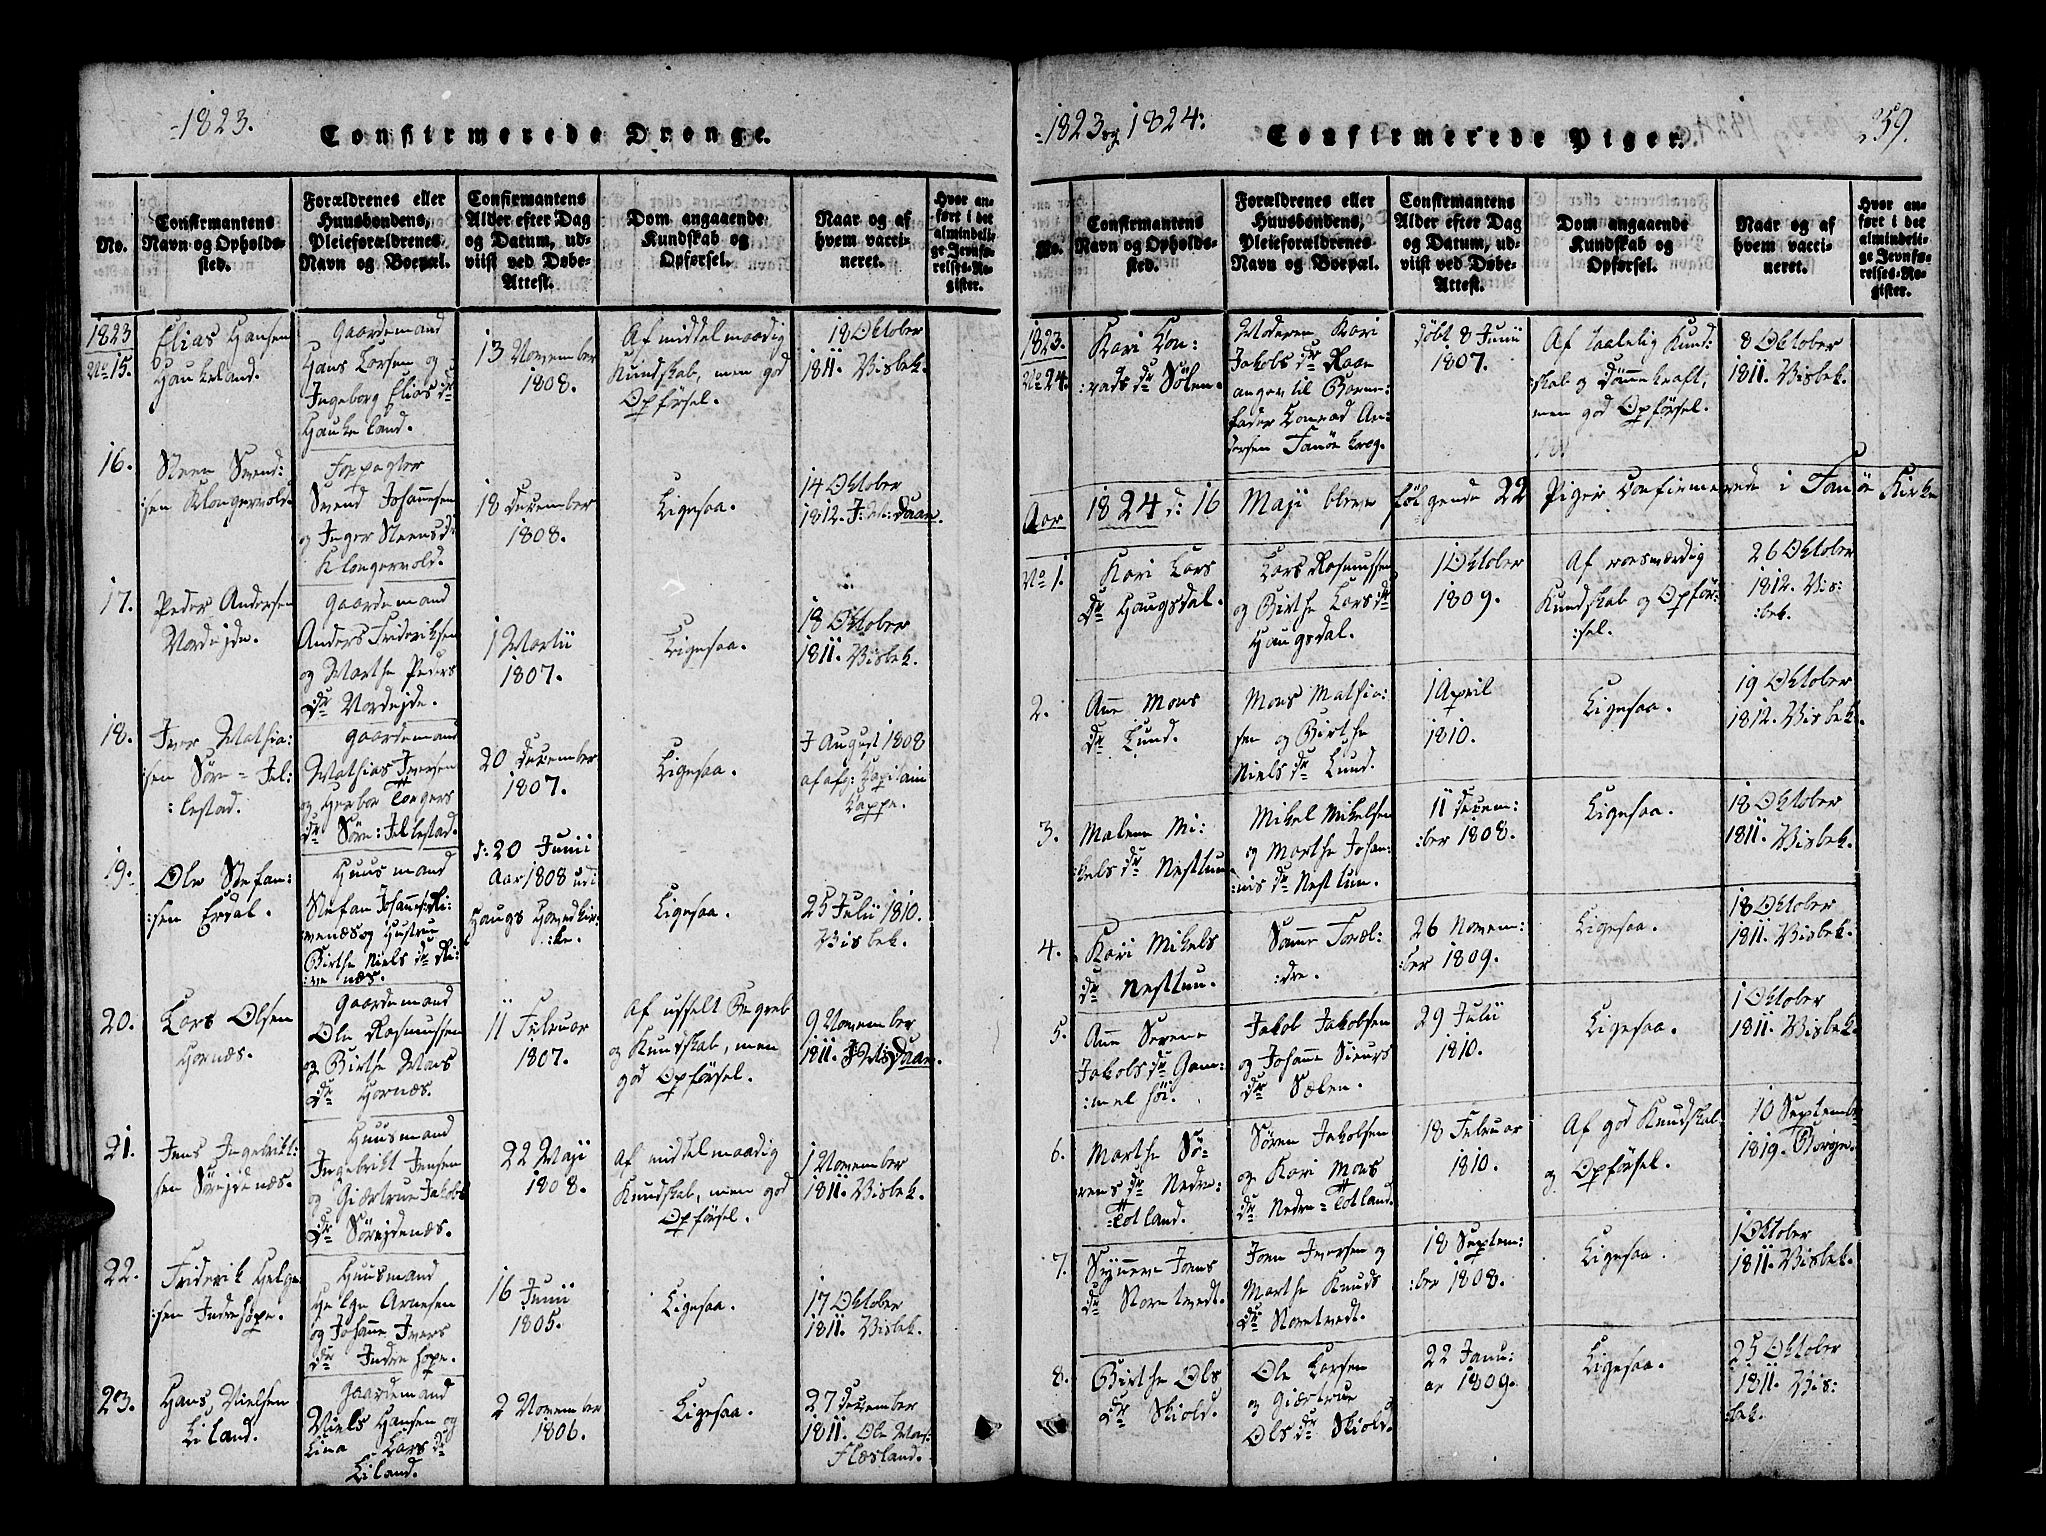 1823.
Confirmerede Drenge.
No.
Confirmantens
Navn og Opholds-
sted.
Forældrenes eller
Huusbondens,
Pleieforældrenes
Navn og Boepæl.
Confirmantens
Alder efter Dag
og Datum, ud-
viist ved Døbe-
Attest.
Dom angaaende
Kundskab og
Opførsel.
Naar og af
hvem vacci-
neret.
Hvor an-
ført i det
almindeli-
ge Jevnfø-
relses-Re-
gister.
1823
No 15.
Elias Hansen
Haukeland.
Gaardemand
Hans Larsen og
Ingeborg Elias dr
Haukeland.
13 November
1808.
Af middelmaadig
Kundskab, men god
Opførsel.
18 Oktober
1811. Bisbek.
16.
Steen Svend:
:sen Klongervold
Forpagter
Svend Johannesen
og Inger Steens d:
Klongervold.
18 December
1808.
Ligesaa.
14 Oktober
1812. J: M: Daan.
17.
Peder Andersen
Nordejde.
Gaardemand
Anders Frideriksen
og Marthe Peders
dr Nordejde.
1 Martii
1807.
Ligesaa.
18 Oktober
1811. Bisbek.
18.
Iver Mathia:
:sen Søre=Jel:
:lestad.
Gaardemand
Mathias Iversen
og Herbor Torgers
dr Søre: Jellestad.
20 December
1807.
Ligesaa.
7 August 1808
af afg: Kapitain
Kappe.
19.
Ole Stefan:
:sen Erdal.
Huusmand
Stefan Johannes: Ri:
venæs og Hustrue
Birthe Niels dr Ri:
:ve næs.
d: 20 Junii
Aar 1808 udi
Haugs Hovedkir:
:ke.
Ligesaa.
25 Julii 1810.
Bisbek.
20.
Lars Olsen
Hornæs.
Gaardemand
Ole Rasmussen
og Birthe Mons
dr Hornæs.
11 Februar
1807.
Af usselt Begreb
og Kundskab, men
god Opførsel.
9 November
1811. J: M: Daan.
21.
Jens Ingebrikt:
:sen Sørejdenæs.
Huusmand
Ingebrikt Jensen
og Giertrue Jakobs
dr Sørejdenæs.
22 Maji
1808.
Af middelmaadig
Kundskab, men god
Opførsel.
1 November
1811. Bisbek.
22.
Friderik Helge
:sen Indrehope.
Huusmand
Helge Arnesen
og Johanne Ivers
dr Indre hope.
16 Junii
1805.
Ligesaa.
17 Oktober
1811. Bisbek.
23.
Hans Nielsen
Liland.
Gaardemand
Niels Hansen og
Lina Lars dr
Liland.
2 November
1806.
Ligesaa.
27 December
1811. Ole M:
Flæsland.
1823 og 1824:
Confirmerede Piger.
259.
No.
Confirmantens
Navn og Opholds-
sted.
Forældrenes eller
Huusbondens,
Pleieforældrenes
Navn og Boepæl.
Confirmantens
Alder efter Dag
og Datum, ud-
viist ved Døbe-
Attest.
Dom angaaende
Kundskab og
Opførsel.
Naar og af
hvem vacci-
neret.
Hvor an-
ført i det
almindeli-
ge Jevnfø-
relses-Re-
gister.
1823.
No 24.
Kari Con:
:rads dr Sølen.
Moderen Kari
Jakobs dr Raae
angav til Barne-
fader Conrad An:
dersen Fanøe krog.
døbt 8 Junii
1807.
Af taalelig Kund:
:skab og Dømmekraft,
men god Opførsel.
8 Oktober
1811. Bisbek.
Aar 1824 d: 16 Maji bleve følgende 22 Piger Confirmerede i Fanøe Kirke
No 1.
Kari Lars
dr Haugsdal.
Lars Rasmussen
og Birthe Lars dr
Haugsdal.
1 Oktober
1809.
Af roesværdig
Kundskab og Opfør:
:sel.
26 Oktober
1812. Bis:
:bek.
2.
Ane Mons
dr Lund.
Mons Mathia:
sen og Birthe
Niels dr Lund.
1 April
1810.
Ligesaa.
19 Oktober
1812. Bisbek.
3.
Malene Mi:
:kels dr Nesttun
Mikel Mikelsen
og Marthe Johan:
:nis dr Nesttun.
11 Decem:
:ber 1808.
Ligesaa.
18 Oktober
1811. Bisbek.
4.
Kari Mikels
dr Nesttun.
Samme Foræl:
:dre.
26 Novem:
:ber 1809.
Ligesaa.
18 Oktober
1811. Bisbek.
5.
Ane Serene
Jakobs dr Gam:
:mel høi.
Jakob Jakobsen
og Johanne Siurs
dr Sælen.
29 Julii
1810.
Ligesaa.
1 Oktober
1811. Bisbek.
6.
Marthe Sø:
rens dr Nedre=
=Totland.
Søren Jakobsen
og Kari Mons
dr Nedre=Totland.
18 Februar
1810.
Af god Kundskab
og Opførsel.
10 Septembr
1819. Borge.
7.
Synneve Joens
dr Noretvedt.
Joen Iversen og
Marthe Knuds
dr Noretvedt.
18 Septem:
:ber 1808.
Ligesaa.
1 Oktober
1811. Bisbek.
8.
Birthe Ols
dr Skiold.
Ole Larsen
og Giertrue
Ols dr Skiold.
22 Janu:
ar 1809.
Ligesaa.
25 Oktober
1811. Bis:
bek.